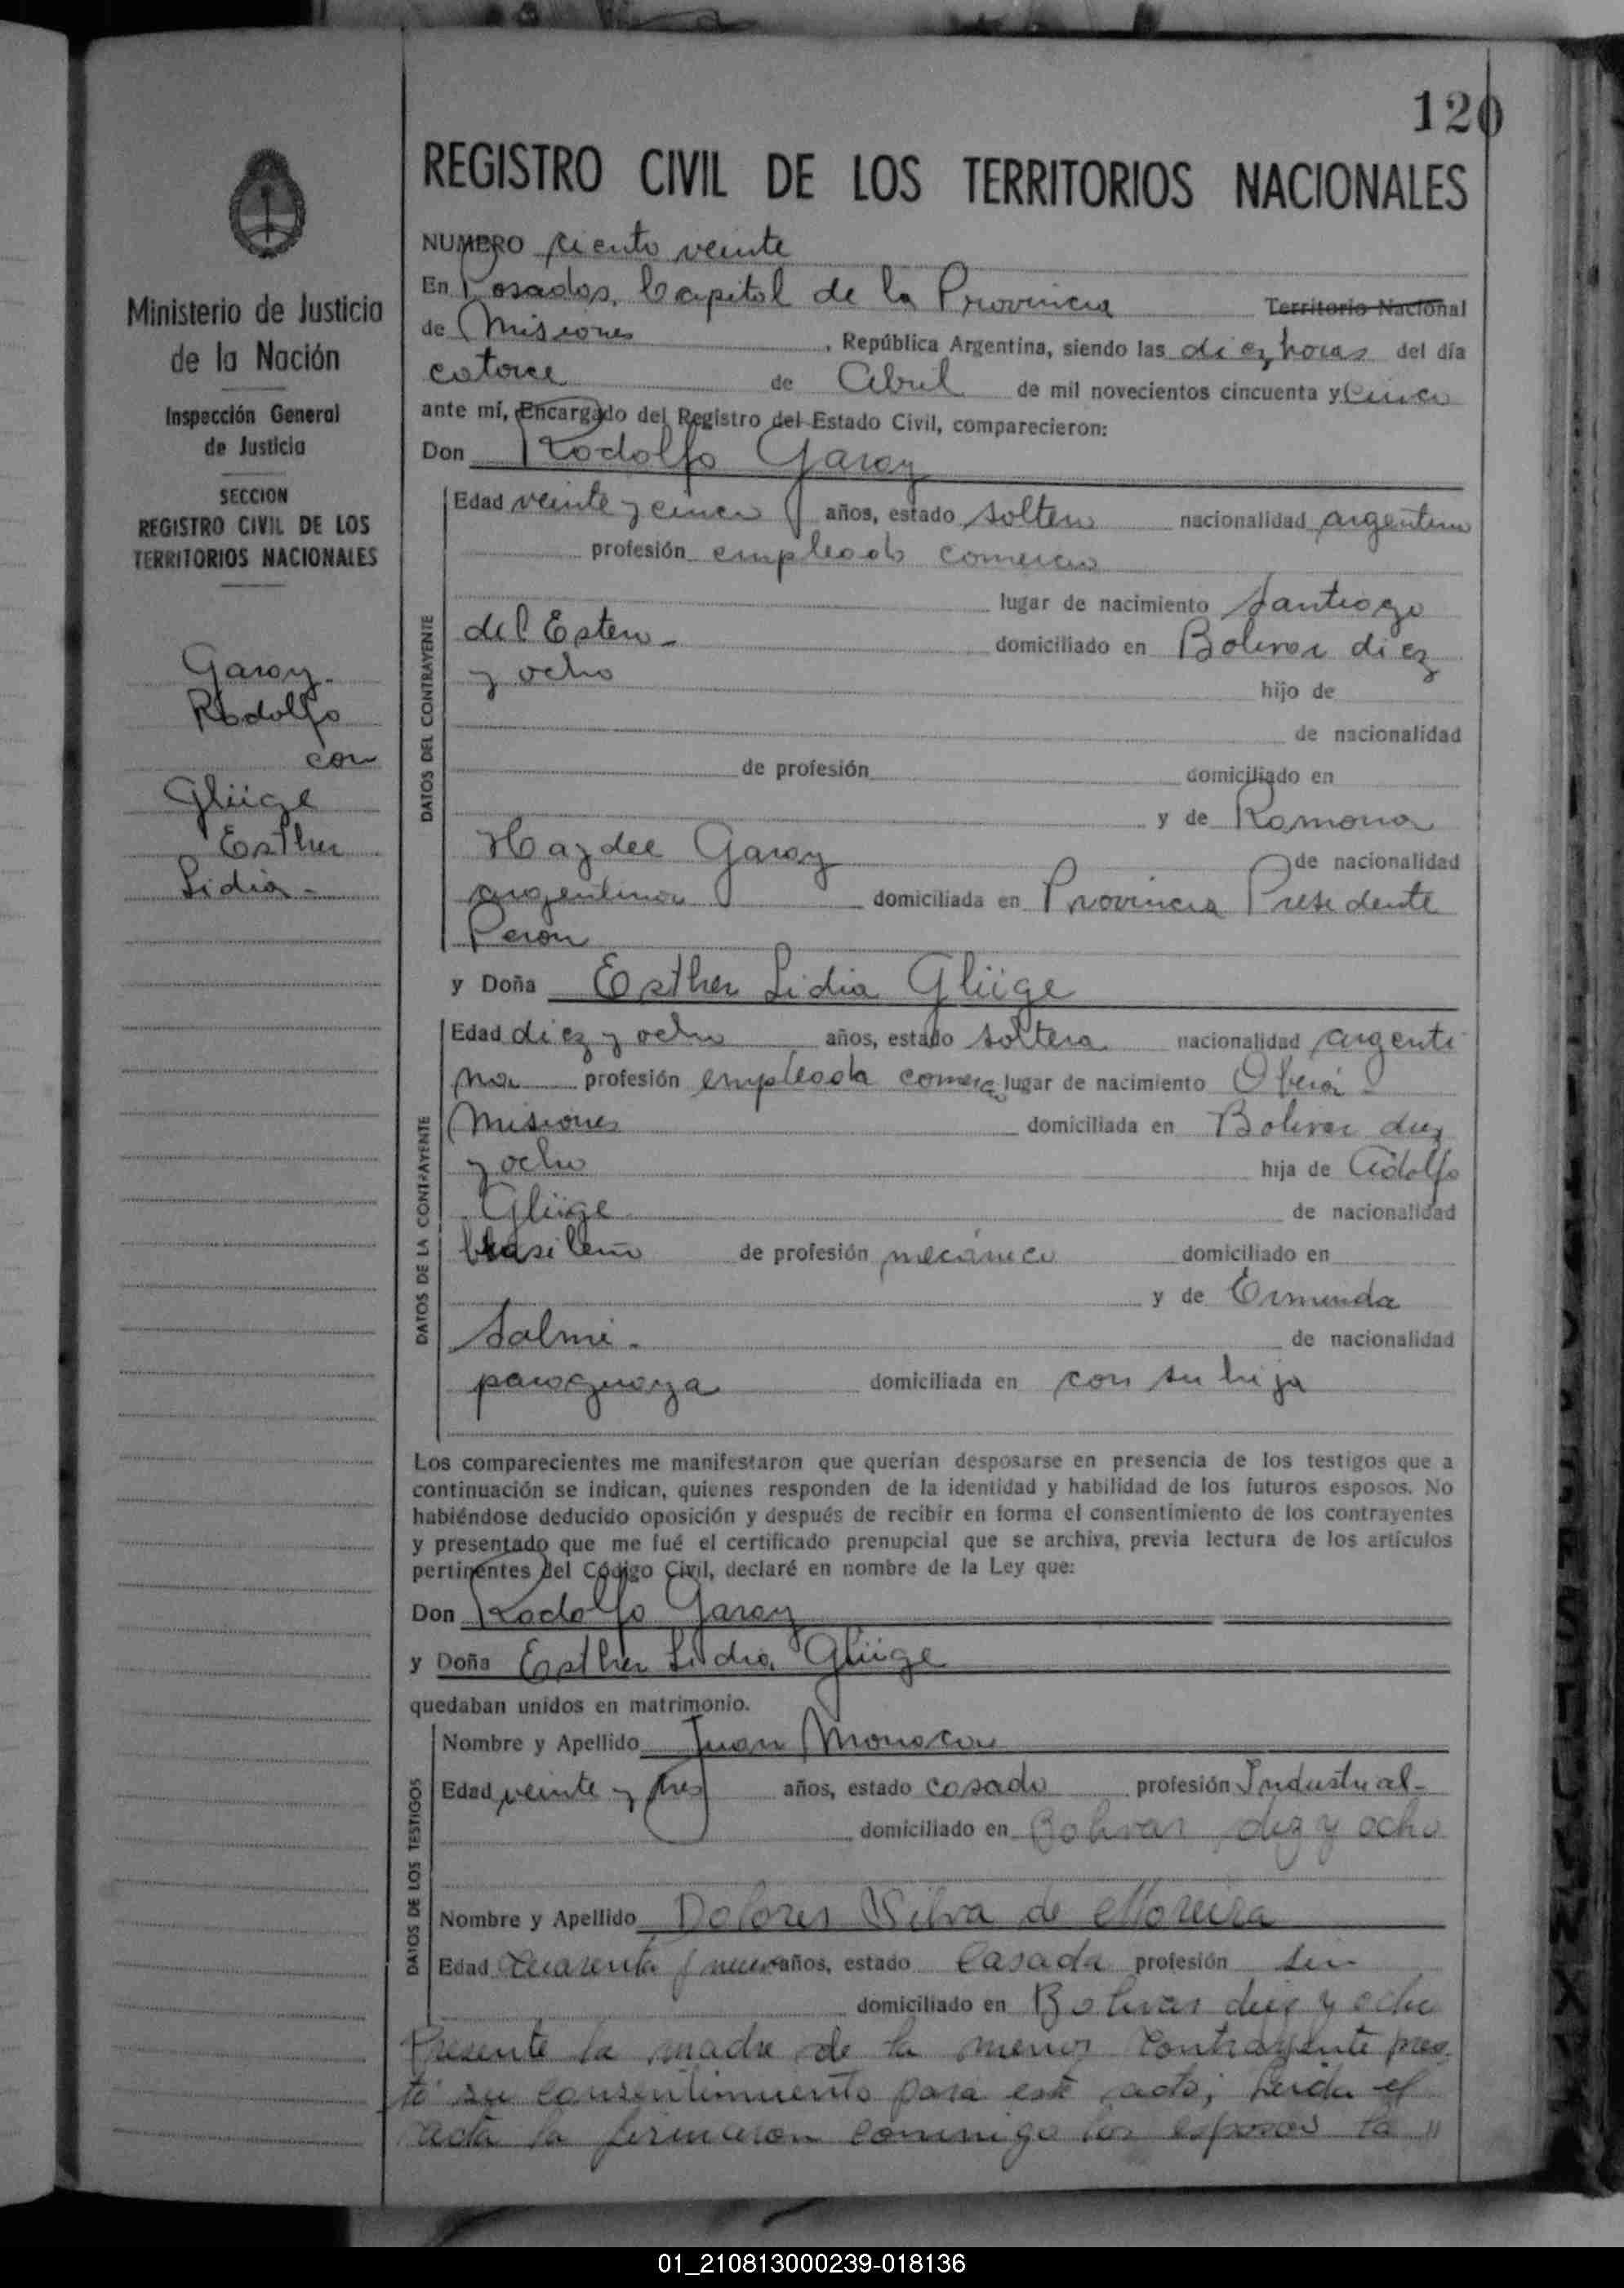 120
REGISTRO CIVIL DE LOS TERRITORIOS NACIONALES
Ministerio de Justicia
de la Nación
Inspección General
de Justicia
SECCION
REGISTRO CIVIL DE LOS
TERRITORIOS NACIONALES
Garay
Rodolfo
con
Glüge
Esther
Lidia -
NUMERO ciento veinte
En Posadas, Capital de la Provincia Territorio Nacional
de Misiones, República Argentina, siendo las diez horas del día
catorce de Abril de mil novecientos cincuenta y cinco
ante mí, Encargado del Registro del Estado Civil, comparecieron:
Don Rodolfo Garay
DATOS DEL CONTRAYENTE
Edad veinte y cinco años, estado soltero nacionalidad argentino
profesión empleado comercio
lugar de nacimiento Santiago
del Estero - domiciliado en Bolivar diez
y ocho hijo de
de nacionalidad
de profesión domiciliado en
y de Ramona
Haydee Garay de nacionalidad
argentina domiciliada en Provincia Presidente
Peron
y Doña Esther Lidia Glüge
DATOS DE LA CONTRAYENTE
Edad diez y ocho años, estado soltera nacionalidad argenti
na profesión empleada comercio lugar de nacimiento Oberá -
Misiones domiciliada en Bolivar diez
y ocho hija de Adolfo
Glüge de nacionalidad
brasileño de profesión mecánico domiciliado en
y de Ermunda
Salmi - de nacionalidad
paraguaya domiciliada en con su hija
Los comparecientes me manifestaron que querían desposarse en presencia de los testigos que a
continuación se indican, quienes responden de la identidad y habilidad de los futuros esposos. No
habiéndose deducido oposición y después de recibir en forma el consentimiento de los contrayentes
y presentado que me fué el certificado prenupcial que se archiva, previa lectura de los artículos
pertinentes del Código Civil, declaré en nombre de la Ley que:
Don Rodolfo Garay
y Doña Esther Lidia Glüge
quedaban unidos en matrimonio.
DATOS DE LOS TESTIGOS
Nombre y Apellido Juan
Edad veinte y tres años, estado casado profesión Industrial -
domiciliado en Bolivar diez y ocho
Nombre y Apellido Dolores Silva de Moreira
Edad cuarenta y nueve años, estado Casada profesión sin
domiciliado en Bolivar diez y ocho
Presente la madre de la menor contrayente pres
tó su consentimiento para este acto; Leida el
acta la firmaron conmigo los esposos la "
01_210813000239-018136